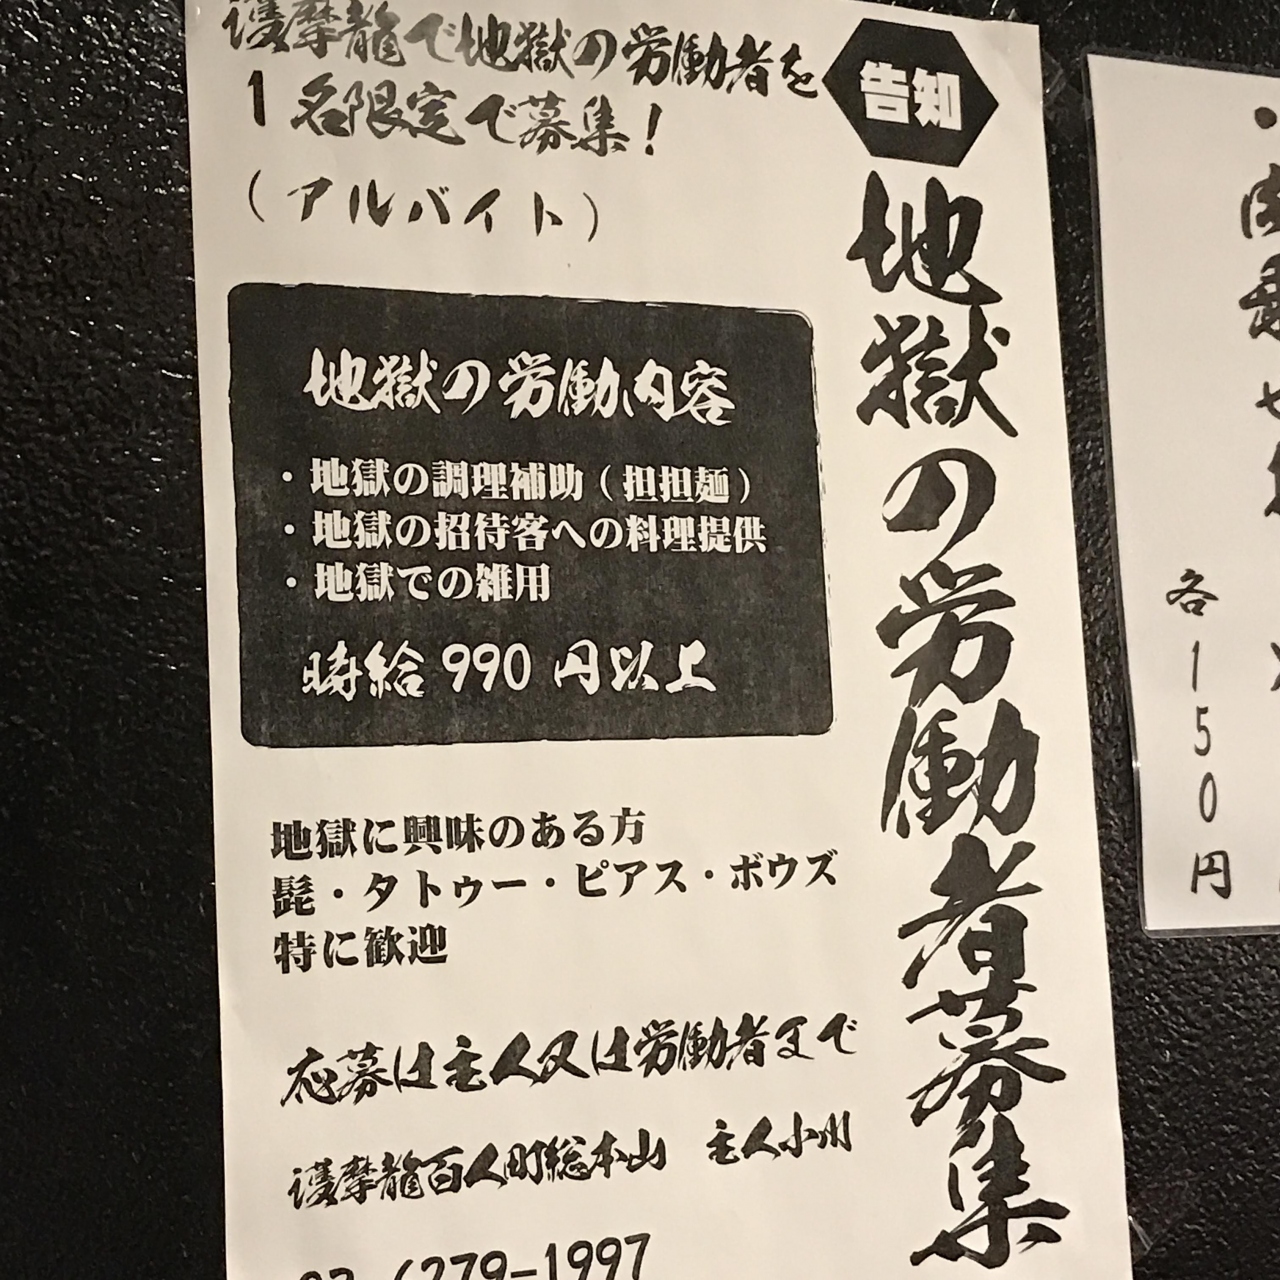 告知
地獄の労働者募集
護摩龍で地獄の労働者を
1名限定で募集!
(アルバイト)
地獄の労働内容
・地獄の調理補助(担担麺)
・地獄の招待客への料理提供
・地獄での雑用
時給990円以上
地獄に興味のある方
髭・タトゥー・ピアス・ボウズ
特に歓迎
応募は主人又は労働者まで
護摩龍百人町総本山 主人小川
6279-1997
各150円